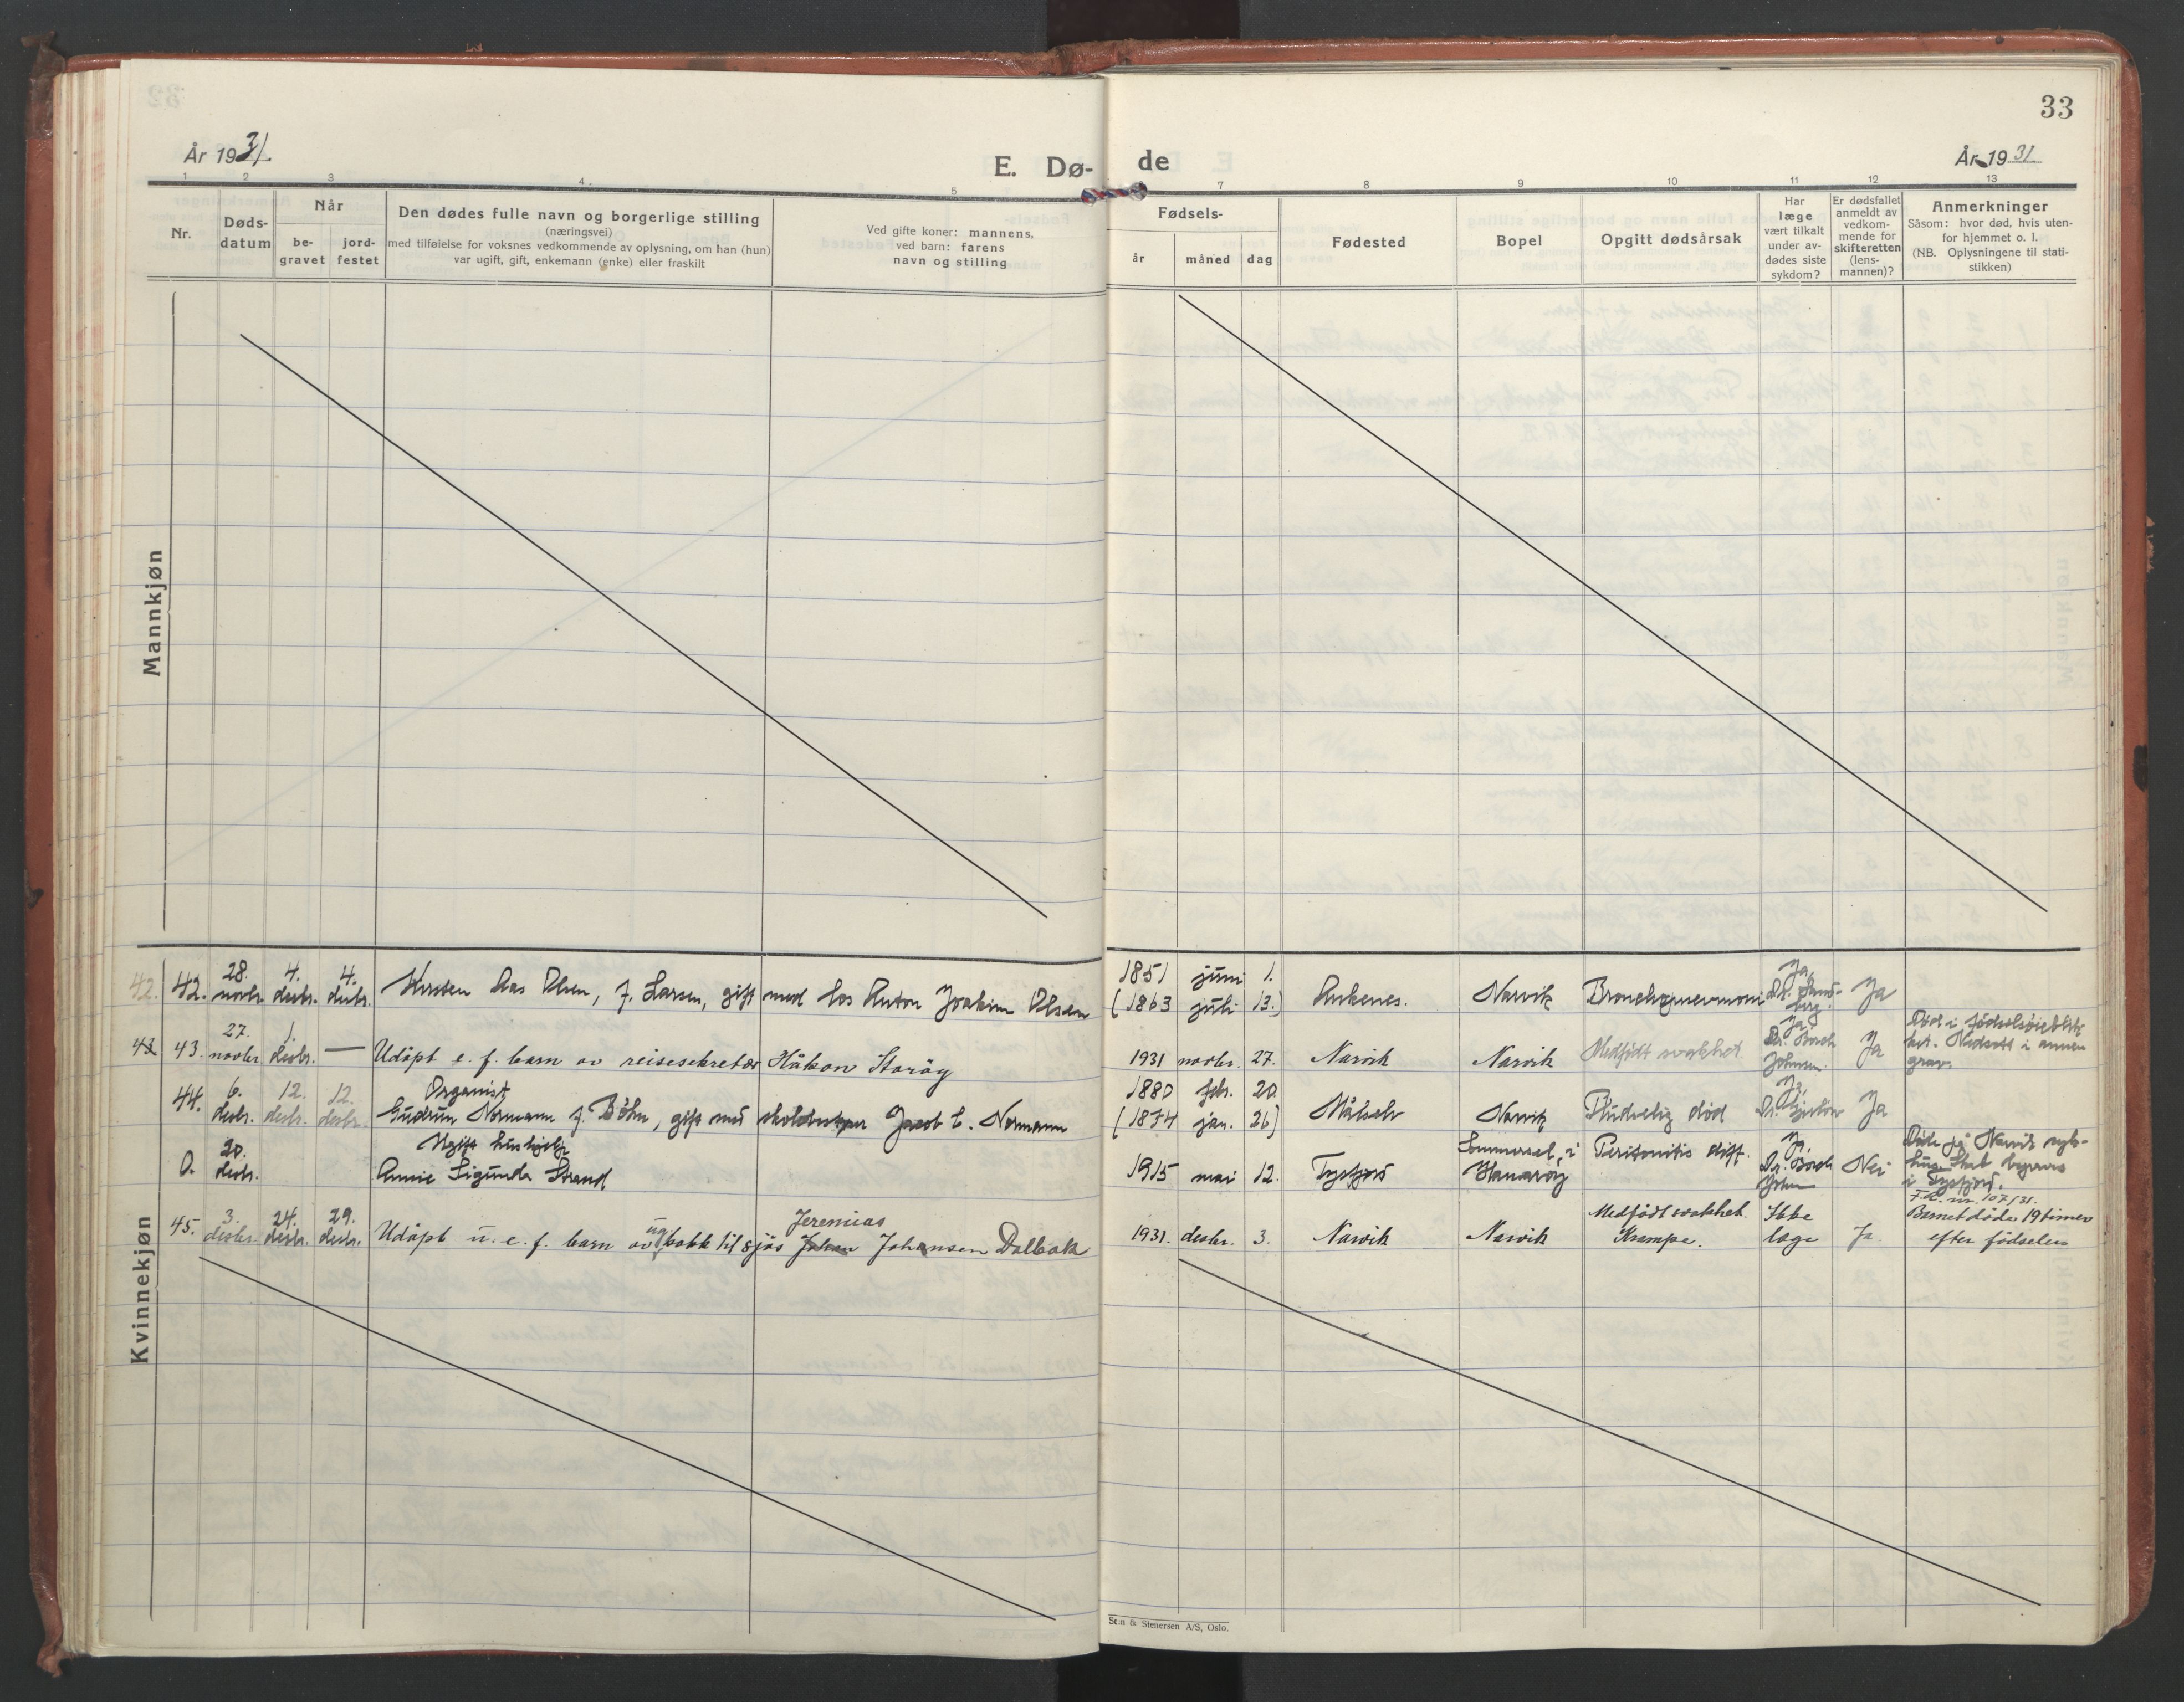 33
År 1931.
E. Dø-
de
År 1931.
1 2 3 4 5 7 8 9 10 11 12 13
Nr.
Døds-
datum
Når
be-
gravet
jord-
festet
Den dødes fulle navn og borgerlige stilling
(næringsvei)
med tilføielse for voksnes vedkommende av oplysning, om han (hun)
var ugift, gift, enkemann (enke) eller fraskilt
Ved gifte koner: mannens,
ved barn: farens
navn og stilling
Fødsels-
år
måned
dag
Fødested
Bopel
Opgitt dødsårsak
Har
læge
vært tilkalt
under av-
dødes siste
sykdom?
Er dødsfallet
anmeldt av
vedkom-
mende for
skifteretten
(lens-
mannen)?
Anmerkninger
Såsom: hvor død, hvis uten-
for hjemmet o. l.
(NB. Oplysningene til stati-
stikken)
Mannkjøn
Kvinnekjøn
42. 42. 28. novbr. 4. desbr. 4. desbr. Kirsten Aas Olsen, f. Larsen, gift med los Anton Joakim Olsen
1851 juni 1.
(1863 juli 13.) Ankenes. Narvik Ja, Ja
43 43. 27. novbr. 1. desbr. — Udöpt e. f. barn av reisesekretær Håkon Storöy
1931 novbr. 27. Narvik Narvik Medfödt svakhet Ja, Dr. Borch Johnsen. Ja
Död i födselsöieblik-
ket. Nedsatt i annen
grav.
44. 6. desbr. 12. desbr. 12. desbr. Organist
Gudrun Normann f. Böhn, gift med Jacob C. Normann
1880 febr. 20
(1874 jan. 26) Målselv Narvik Pludselig död Ja, Dr. Ja
0. 20. desbr. Ugift
Annie Sigunda Strand
1915 mai 12. Tysfjord i Hamaröy Peritonitis diff. Ja, Dr. Borch John Nei
Döde på Narvik syk-
hus. Skal begraves
i Tysfjord.
45. 3. desbr. 24. desbr. 29. desbr. Udöpt u. e. f. barn av ug. kokk til sjös Johan Jeremias Johansen Dalbak
1931. desbr. 3. Narvik Narvik Medfödt svakhet. Krampe. Ikke læge Ja.
F. R. nr. 107/31.
Barnet döde 19 timer
efter födselen
Sem & Stenersen A/S, Oslo.